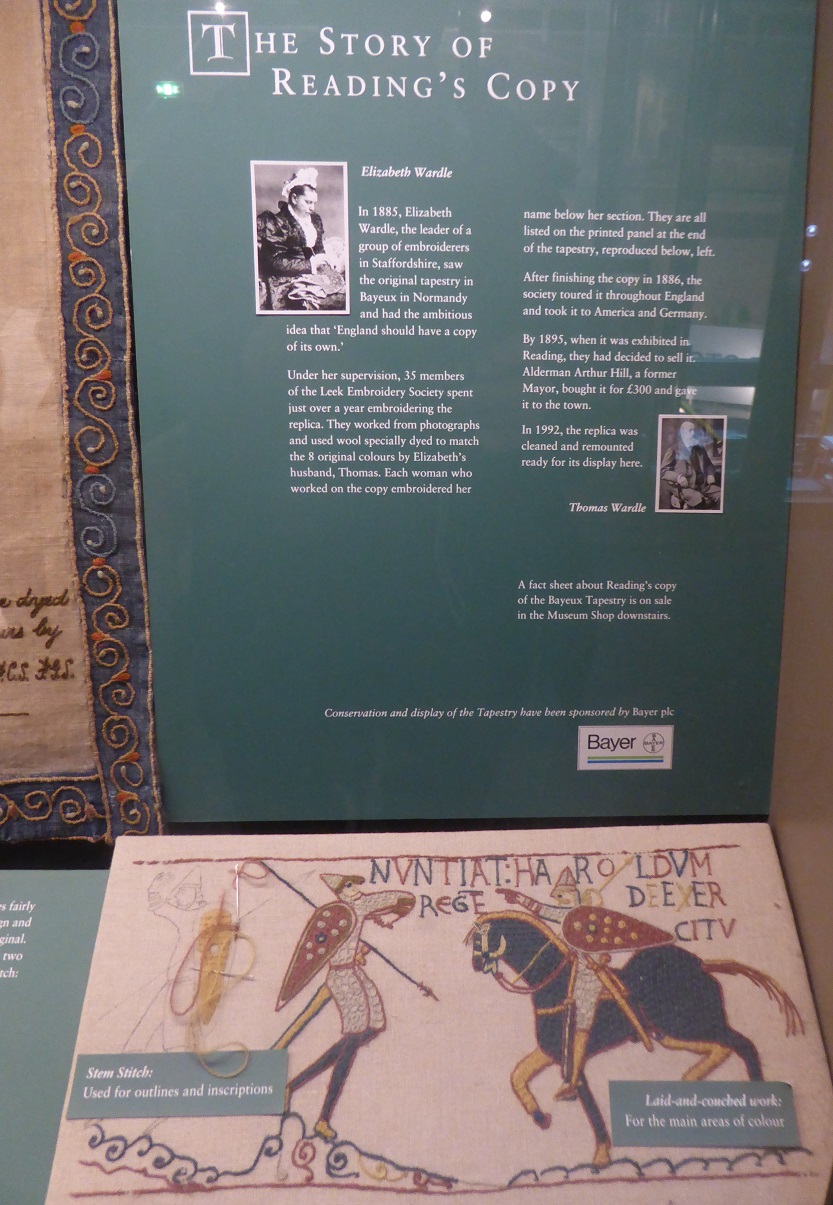 THE STORY OF
READING'S COPY
Elizabeth Wardle
In 1885, Elizabeth
Wardle, the leader of a
group of embroiderers
in Staffordshire, saw
the original tapestry in
Bayeux in Normandy
and had the ambitious
idea that 'England should have a copy
of its own.'
Under her supervision, 35 members
of the Leek Embroidery Society spent
just over a year embroidering the
replica. They worked from photographs
and used wool specially dyed to match
the 8 original colours by Elizabeth's
husband, Thomas. Each woman who
worked on the copy embroidered her
name below her section. They are all
listed on the printed panel at the end
of the tapestry, reproduced below, left.
After finishing the copy in 1886, the
society toured it throughout England
and took it to America and Germany.
By 1895, when it was exhibited in
Reading, they had decided to sell it.
Alderman Arthur Hill, a former
Mayor, bought it for £300 and gave
it to the town.
In 1992, the replica was
cleaned and remounted
ready for its display here.
Thomas Wardle
A fact sheet about Reading's copy
of the Bayeux Tapestry is on sale
in the Museum Shop downstairs.
Conservation and display of the Tapestry have been sponsored by Bayer plc
Bayer
dyed
by
F.G.S.
fairly
and
two
NVNTIAT:HAROLDVM
REGE DEEXER
CITV
Stem Stitch:
Used for outlines and inscriptions
Laid-and-couched work:
For the main areas of colour